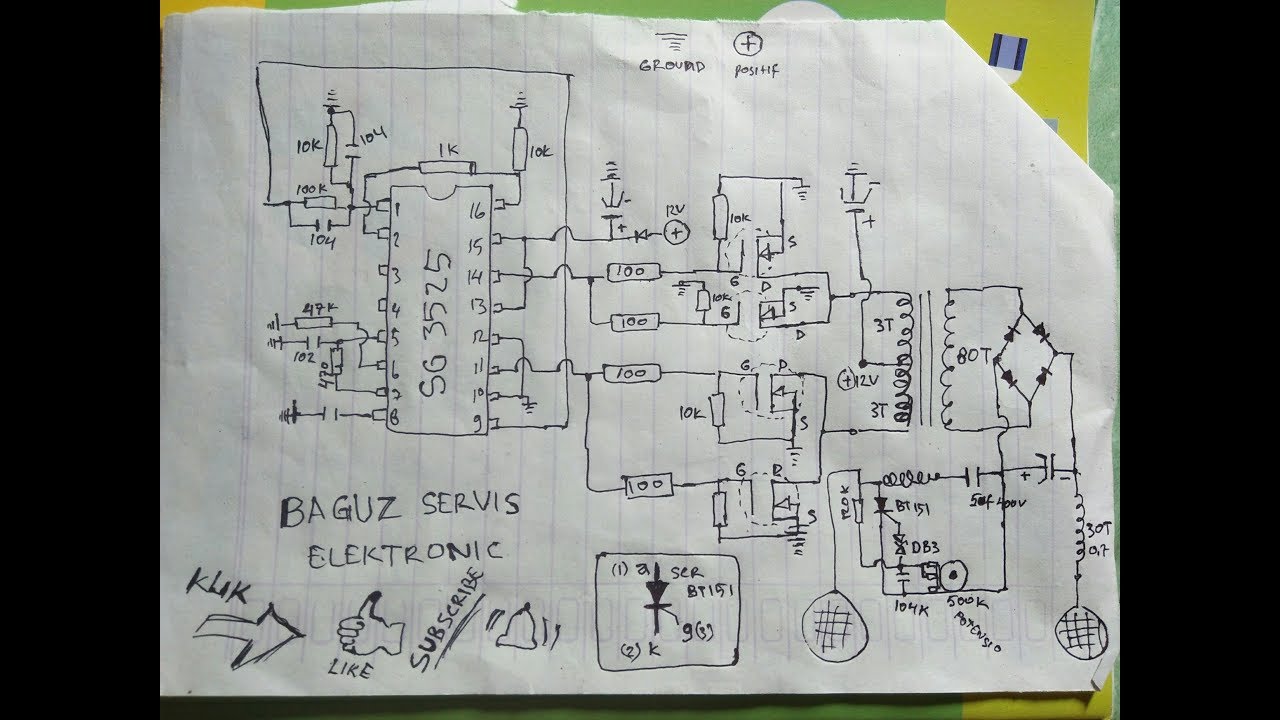 GROUND
POSITIF
+
10K
104
1K
10K
100K
104
1
2
3
4
5
6
7
8
16
15
14
13
12
11
10
9
SG 3525
47K
102
470
-
+
12V
+
100
100
100
100
10K
S
G
D
10K
G
S
D
G
D
10K
S
G
D
S
-
+
3T
+12V
3T
80T
+
-
120K
BT151
DB3
104K
500K
POTENSIO
400V
30T
0,7
BAGUZ SERVIS
ELEKTRONIC
KLIK
LIKE
SUBSCRIBE
(1) a
SCR
BT151
g(3)
(2) K